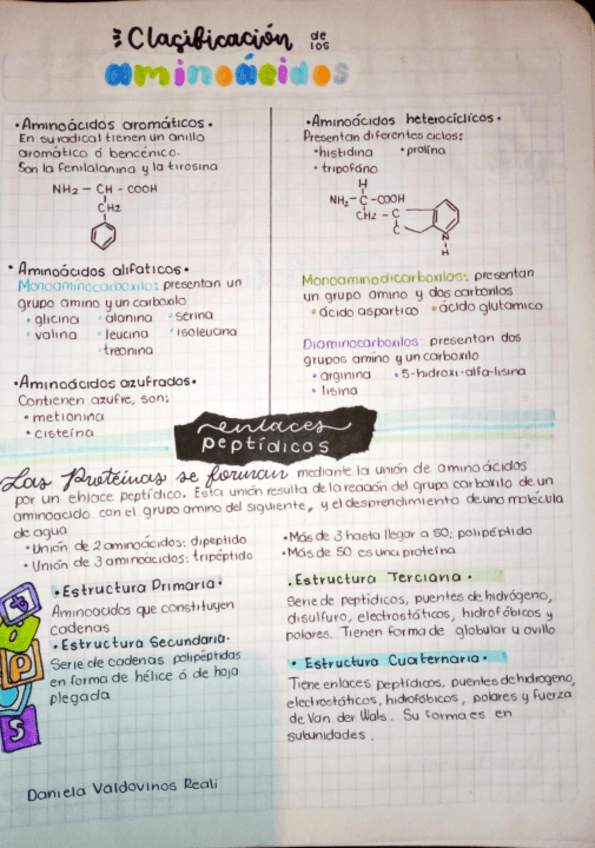 Clasificación de los
aminoácidos
• Aminoácidos aromáticos •
En su radical tienen un anillo
aromático ó bencénico.
Son la fenilalanina y la tirosina
NH2 – CH - COOH
CH2
• Aminoácidos alifaticos •
Monoaminocarboxilo: presentan un
grupo amino y un carboxilo
• glicina • alanina • serina
• valina • leucina • isoleucina
• treonina
• Aminoácidos azufrados •
Contienen azufre, son:
• metionina
• cisteína
• Aminoácidos heterocíclicos •
Presentan diferentes ciclos:
• histidina • prolina
• tripofáno
H
NH2 – C – COOH
CH2 – C
C
N
H
Monoaminodicarboxilos: presentan
un grupo amino y dos carboxilos
• ácido aspartico • ácido glutamico
Diaminocarboxilos: presentan dos
grupos amino y un carboxilo
• arginina • 5-hidroxi-alfa-lisina
• lisina
enlaces
peptídicos
Las Proteínas se forman mediante la unión de aminoácidos
por un enlace peptídico. Esta unión resulta de la reacion del grupo carboxilo de un
aminoacido con el grupo amino del siguiente, y el desprendimiento de una molécula
de agua
• Unión de 2 aminoácidos: dipeptido
• Unión de 3 aminoácidos: tripéptido
• Más de 3 hasta llegar a 50: polipéptido
• Más de 50 es una proteína
• Estructura Primaria •
Aminoacidos que constituyen
cadenas
• Estructura Secundaria •
Serie de cadenas polipéptidas
en forma de hélice ó de hoja
plegada
. Estructura Terciaria •
Serie de peptidicos, puentes de hidrógeno,
disulfuro, electrostáticos, hidrofóbicos y
polares. Tienen forma de globular u ovillo
• Estructura Cuaternaria •
Tiene enlaces peptídicos, puentes de hidrogeno,
electrostáticos, hidrofóbicos, polares y fuerza
de Van der Wals. Su forma es en
subunidades.
O
P
S
Daniela Valdovinos Reali